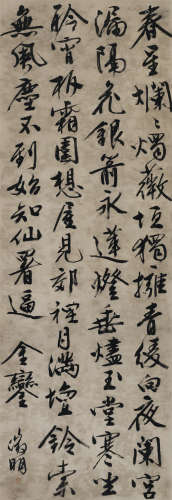 春星爛〻燭薇垣獨擁青綾向夜闌宮
漏隔花銀箭永蓮燈垂燼玉堂寒坐
聆宵柝霜圍想屋見郊禋月滿壇鈴索
無風塵不到始知仙署逼金鑾
徵明